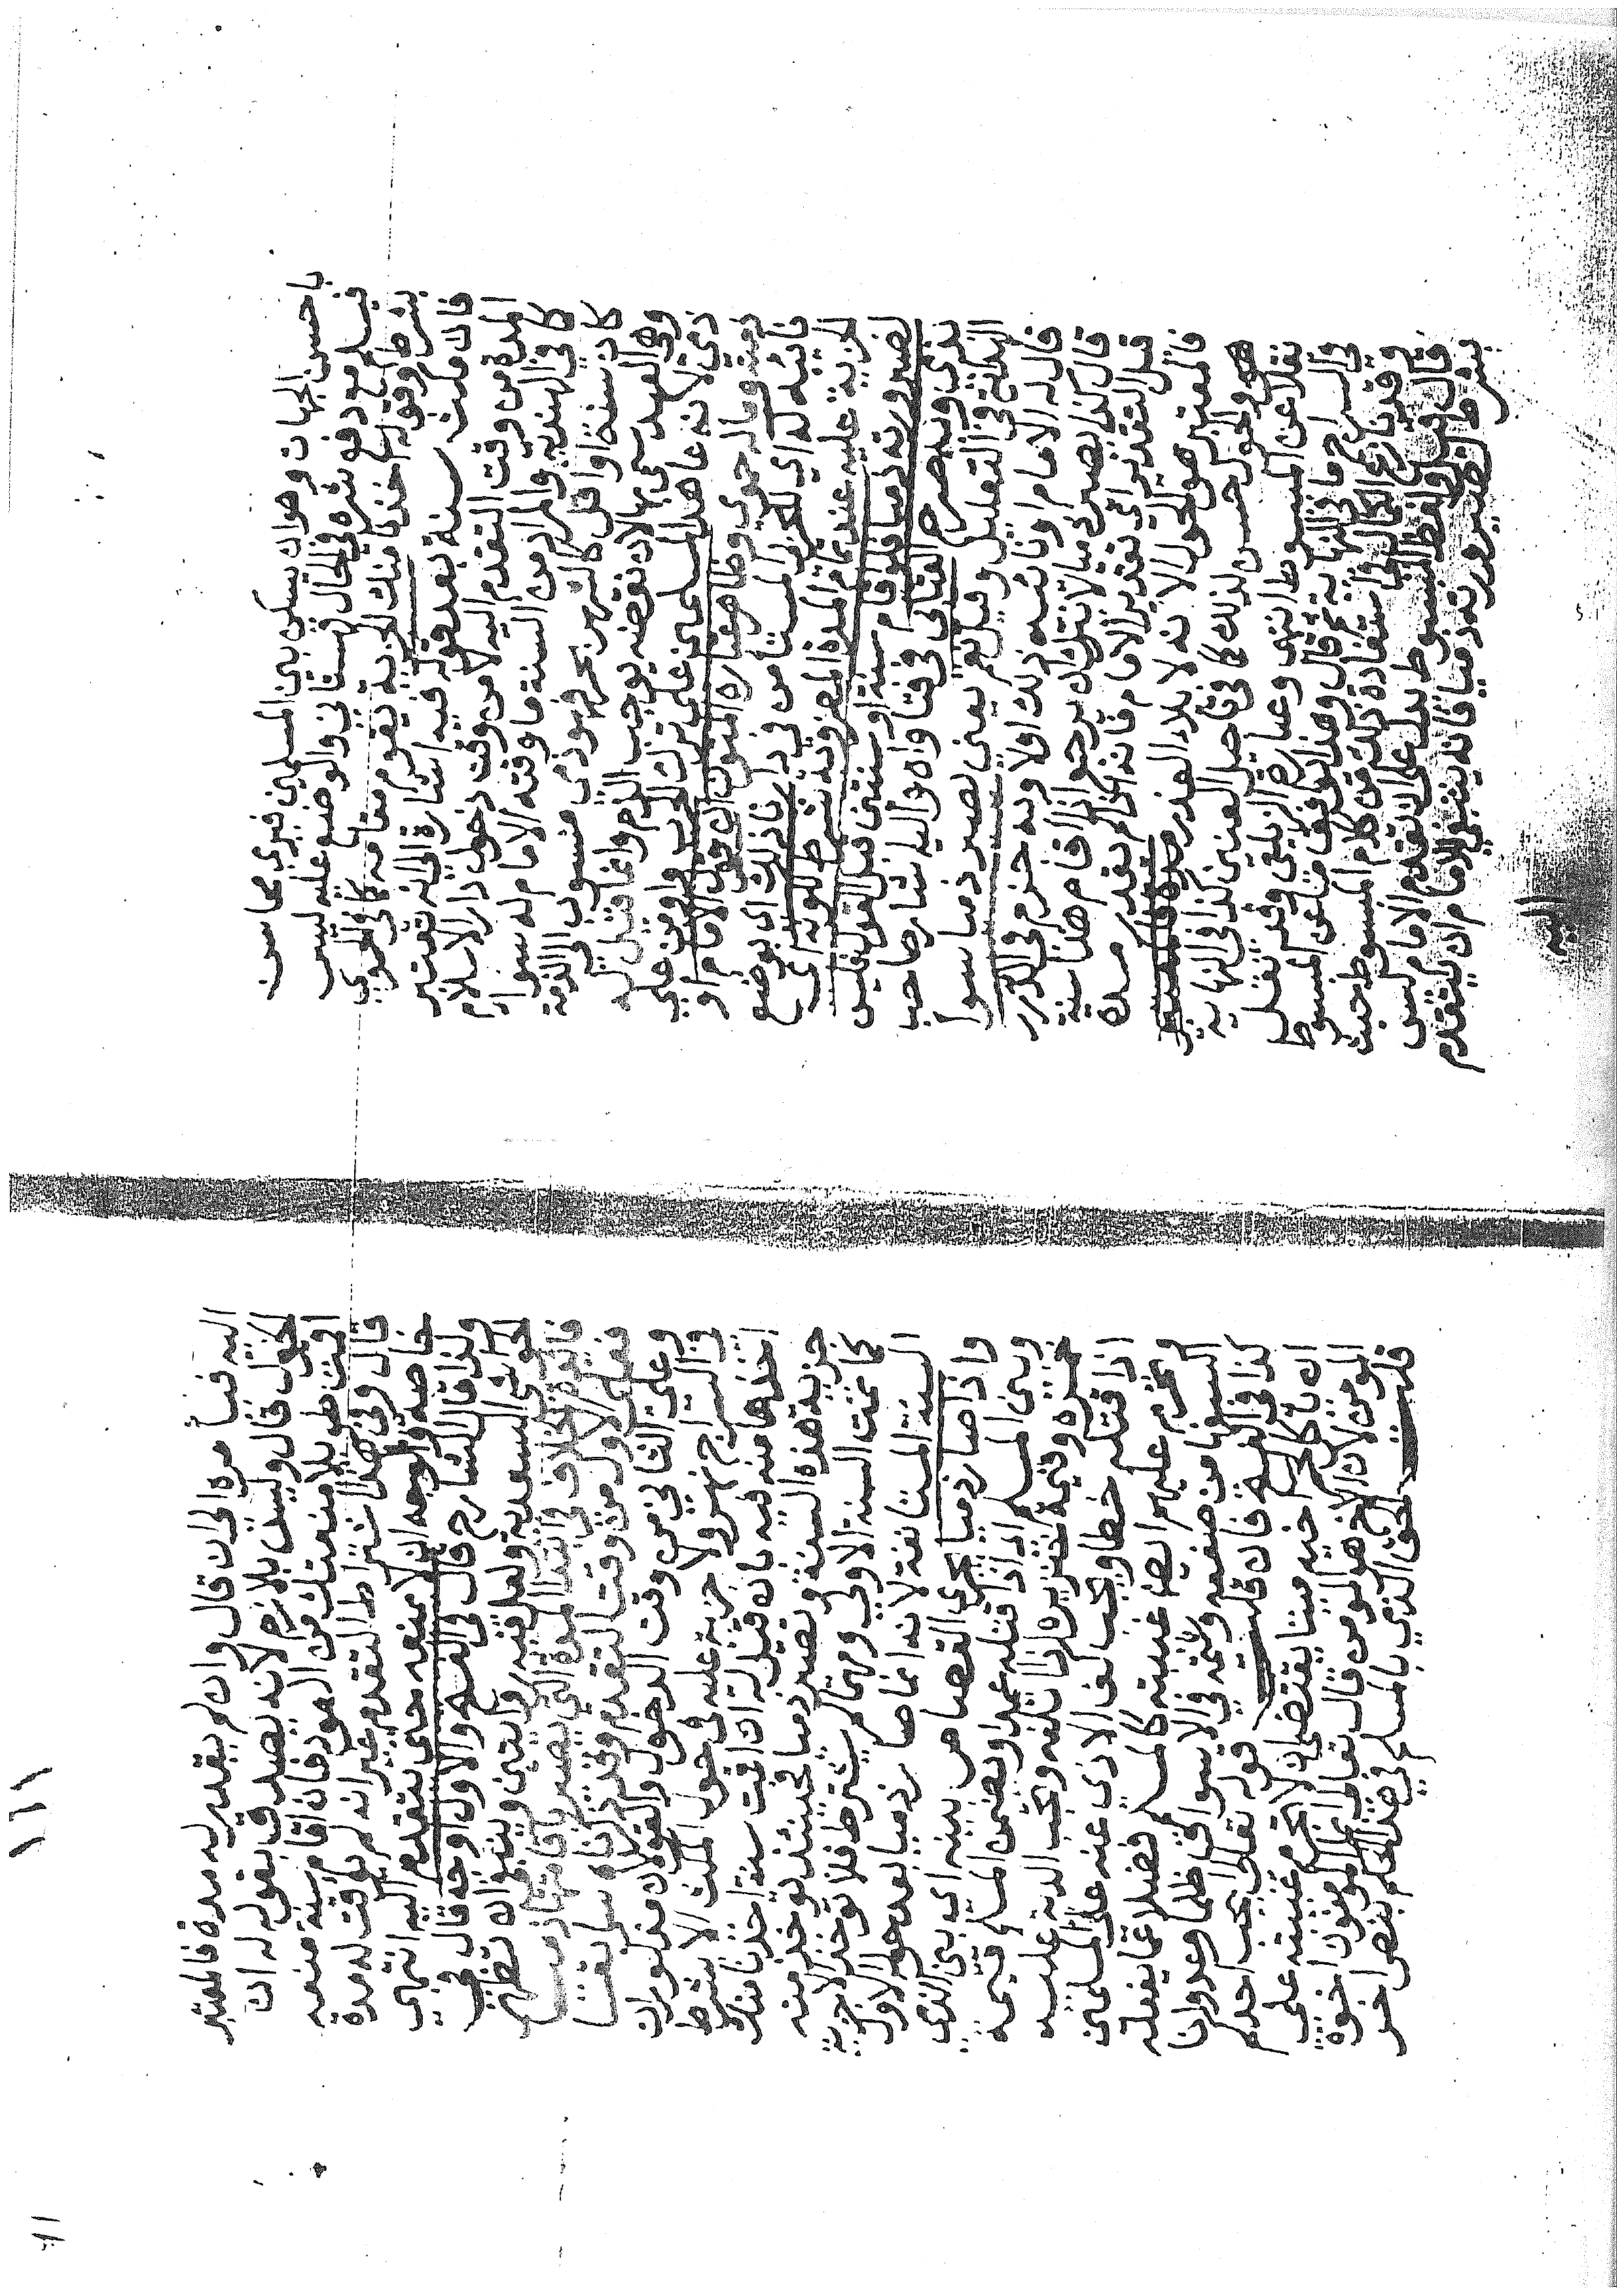 باحسن الجهات وهو ان يسكن بين المسلمين فيري محاسن
فيسلم مع دفع شره في الحال قهستاني والوضع عليه ليس
بشرط بل قوله اخذنا منك الجزية يقوم مقامه كما في الحموي
فان مكث سنة بعد قوله فيه اشارة الى انه تعتبر
المدة من وقت التقدم اليه لا من وقت دخول دار الاسلام
كما في الهندية والمراد من السنة ما وقته الامام له سوا
كان سنة او اقل كالشهرين بحر فهو ذمي منسوب الى الذمة
وهي العهد سمي بها لان نقضه يوجب الذم وانما قيل له
ذمي لانه عاهد المسلمين على ترك الحرب وامن على
دمه وماله حموي وظاهر عبارة المتون ان قول الامام او
نائبه له اي للحربي المستامن في دارنا ذلك اي بوضع
الجزية عليه عند تمام المدة المضروبة شرط لكونه اي
لصيرورته ذميا فلو اقام سنة او سنتين قبل القول فليس
بذمي وبه صرح العتابي في فتاواه واليه اشار صاحب
الهداية في التعليل وقيل نعم يعني يصير ذميا سوا
قال له الامام او نائبه ذلك اولا وبه جزم في الدرر
قال كذا يصير ذميا لا يترك ان يرجع اذا اقام هنا سنة
قبل التقدير اي تقدير الامام فانه اذا لم يقدر مدة
فالمعتبر هو الحول لانه لابلاء العذر
هو والحول حسن لذلك كما في تاجيل العنين كذا في النهاية
نقلا عن المبسوط انتهى وعبارة الزيلعي وقد نقل
في السراج ما في النهاية ثم قال وهذا توفيق منا عن المبسوط
وقد نازع الكمال في استفادة ذلك من كلام المبسوط حيث
قال وقيل ولفظ المبسوط يدل على ان تقدم الامام ليس
بشرط لصيرورته ذميا فانه ينبغي للامام ان يتقدم
اليه
١٦١
اليه فيأمره الى ان قال وان لم يقدر له مدة فالمعتبر
الحول قال وليس بلازم لانه يصدق بقوله له ان
اقمت طويلا منعتك من العود فان اقام سنة منعه
قال وفي هذا اشتراط التقدم غير انه لم يوقت له مدة
خاصة والوجه ان لا يمنعه حتى يتقدم اليه انتهى
ولذا قال الشارح قال في الفتح والاول اوجه قال في
الحواشي السعدية ولعل فيه روايتين وينبغي ان تظهر
فايدة الخلاف في ابتداء المدة التي يصير باقامتها ذميا
فعلى الاول من وقت التقدم وقد ذكرناه سابقا
وعلى الثاني من وقت الدخول والقولان مذكوران
في السراج نهر ولا جزية عليه في حول المكث الا بشرط
اخذها منه فيه بان قيل له ان اقمت سنة اخذنا منك
جزية هذه السنة ويصير ذميا فحينئذ يوخذ منه
كما تمت السنة الاولى ومهما لم يشترط فلا توخذ الا جزية
السنة المستانفة لانه انما صار ذميا بعد حول الاول
واذا صار ذميا يجري القصاص بينه اي بين الذمي
وبين المسلم اي اذا قتله عمدا ويضمن المسلم قيمة
خمره وقيمة خنزيره اذا اتلفه وتجب الدية عليه
اذا قتله خطا ويجب كف الاذي عنه على المسلمين
وتحرم عليهم ايضا غيبته كالمسلم فضلا عما يفعله
السوقة من صفعه وشتمه في الاسواق ظلما وعدوانا
كذا في الفتح فان قلت قوله تعالى ايحب احدكم
ان ياكل لحم اخيه ميتا يقتضي ان لا تحرم غيبته على
المومن لان الاخ هو المومن قال تعالى انما المومنون اخوة
قلت الحق الذمي بالمسلم في هذا الحكم بنص اخر